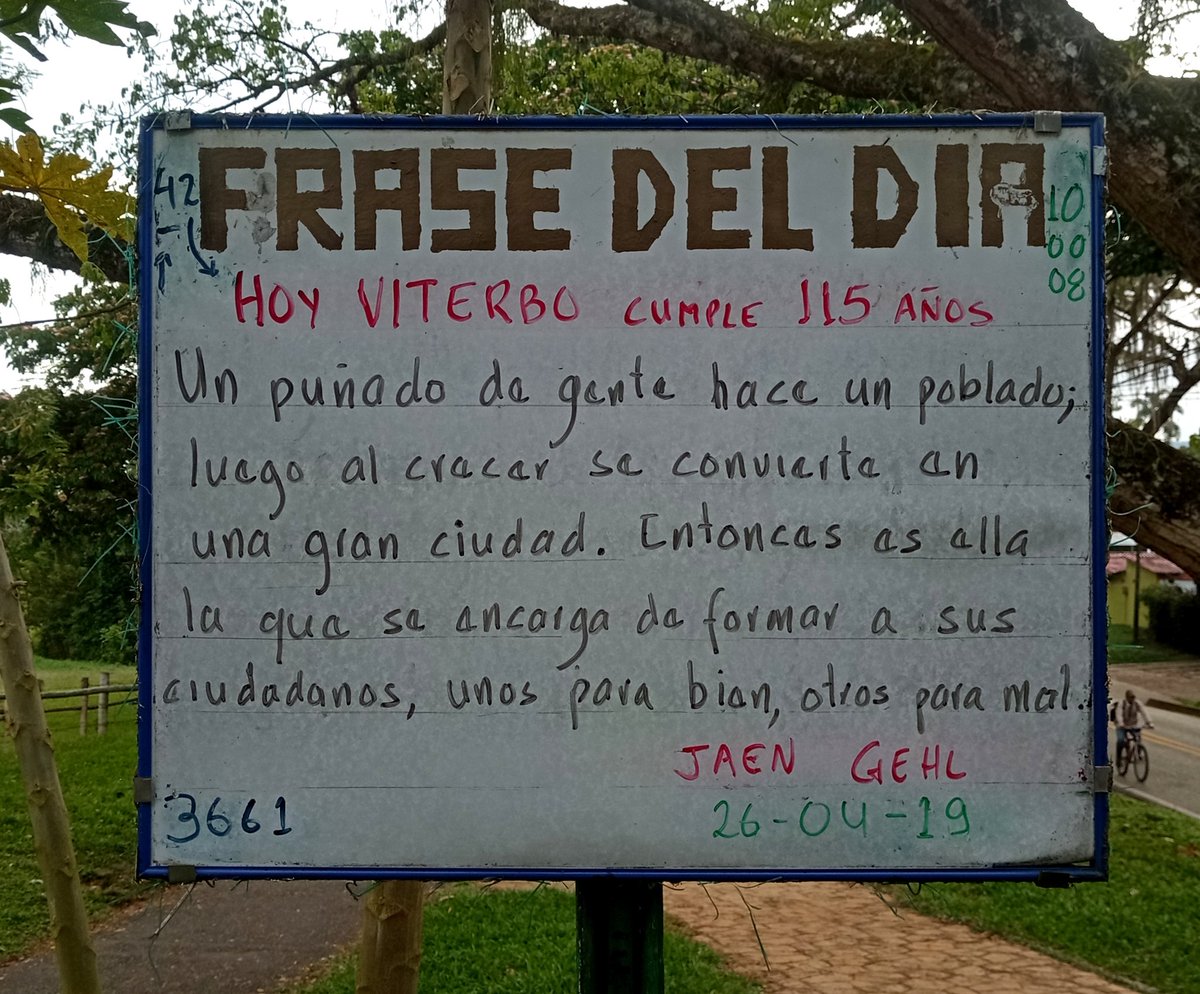 FRASE DEL DIA
42
10
00
08
HOY VITERBO CUMPLE 115 AÑOS
Un puñado de gente hace un poblado;
luego al crecer se convierte en
una gran ciudad. Entonces es ella
la que se encarga de formar a sus
ciudadanos, unos para bien, otros para mal.
JAEN GEHL
3661
26-04-19